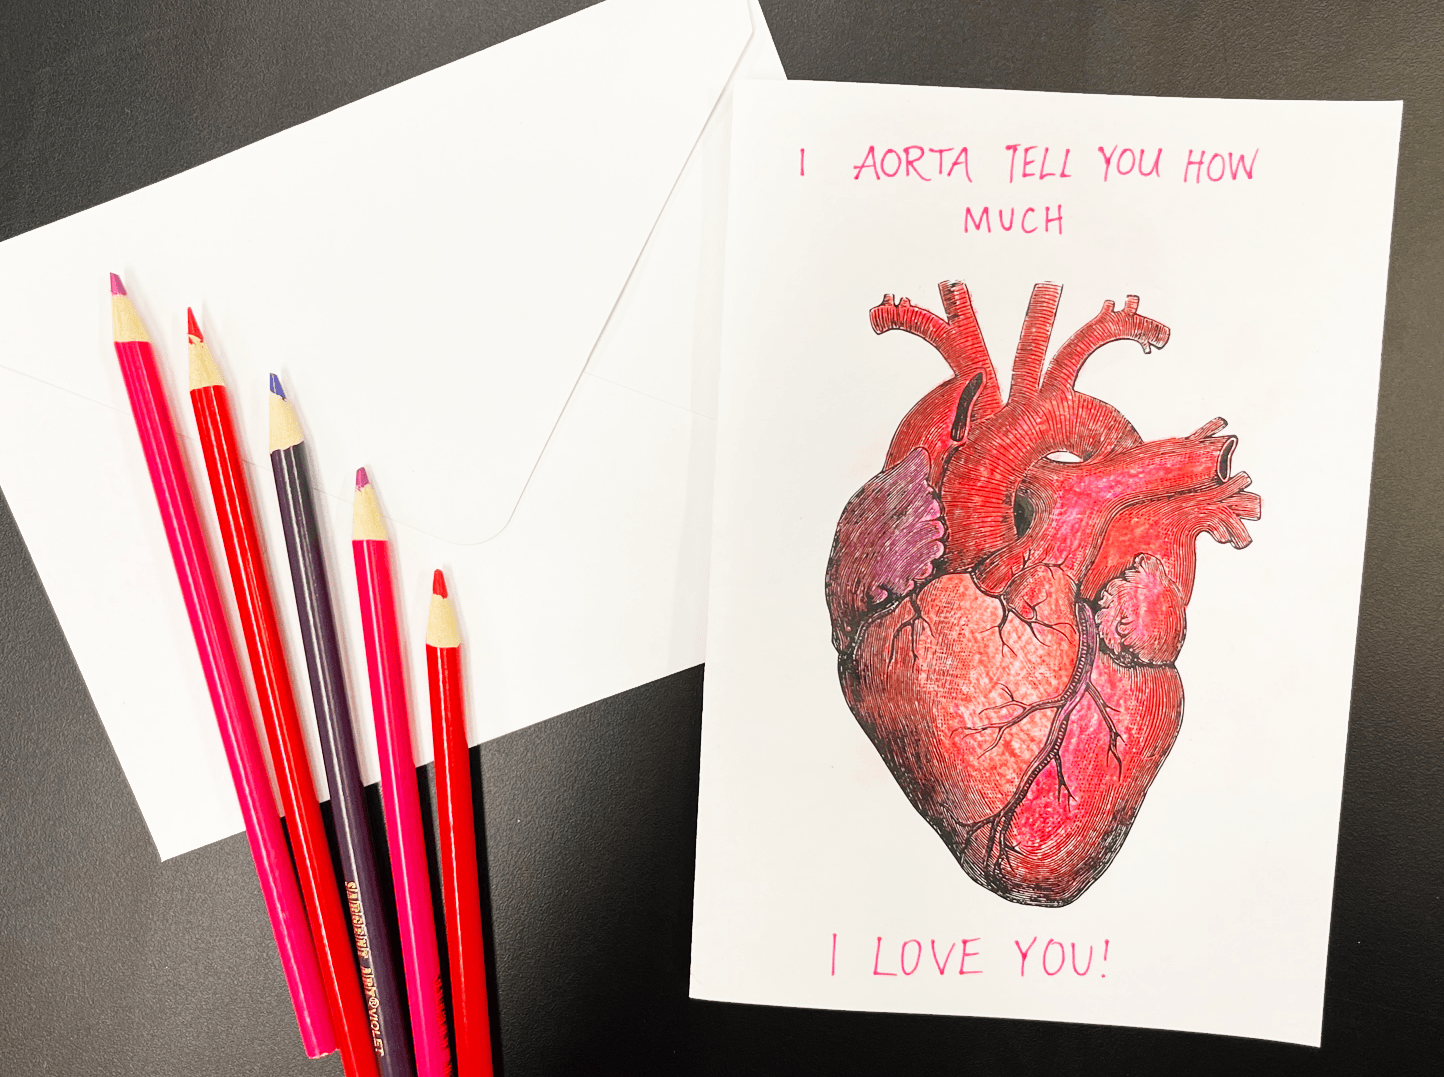 I AORTA TELL YOU HOW
MUCH
I LOVE YOU!
SARGENT ART® VIOLET